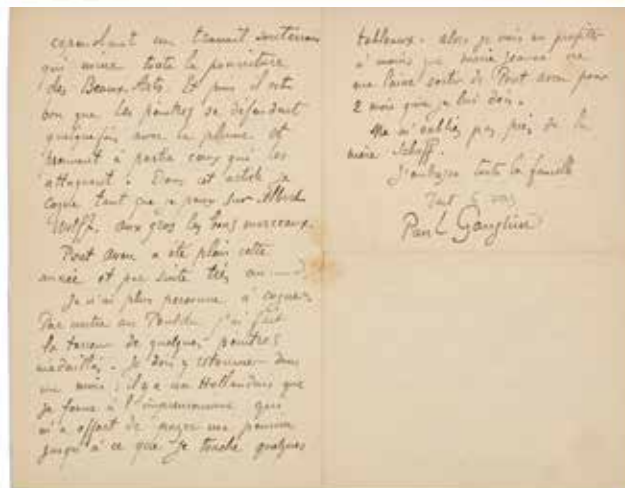 cependant un travail souterrain
qui mine toute la pourriture
des Beaux-Arts. Et puis il est
bon que les peintres se défendent
quelquefois avec la plume et
prennent à partie ceux qui les
attaquent. Dans cet article je
cogne tant que je peux sur Albert
Wolff. aux gros les bons morceaux.
Pont aven a été plein cette
année et par suite très
Je n'ai plus personne à cogner
Par contre au Pouldu j'ai fait
la terreur de quelques peintres
médaillés. Je dois y retourner dans
un mois; il y a un Hollandais que
je forme à l'impressionnisme qui
m'a offert de payer ma pension
jusqu'à ce que je touche quelques
tableaux. alors je vais en profiter
à moins que marie jeanne ne
me laisse sortir de Pont aven pour
2 mois que je lui dois.
Ne m'oubliez pas près de la
mère Schuff.
J'embrasse toute la famille
Tout à vous
Paul Gauguin